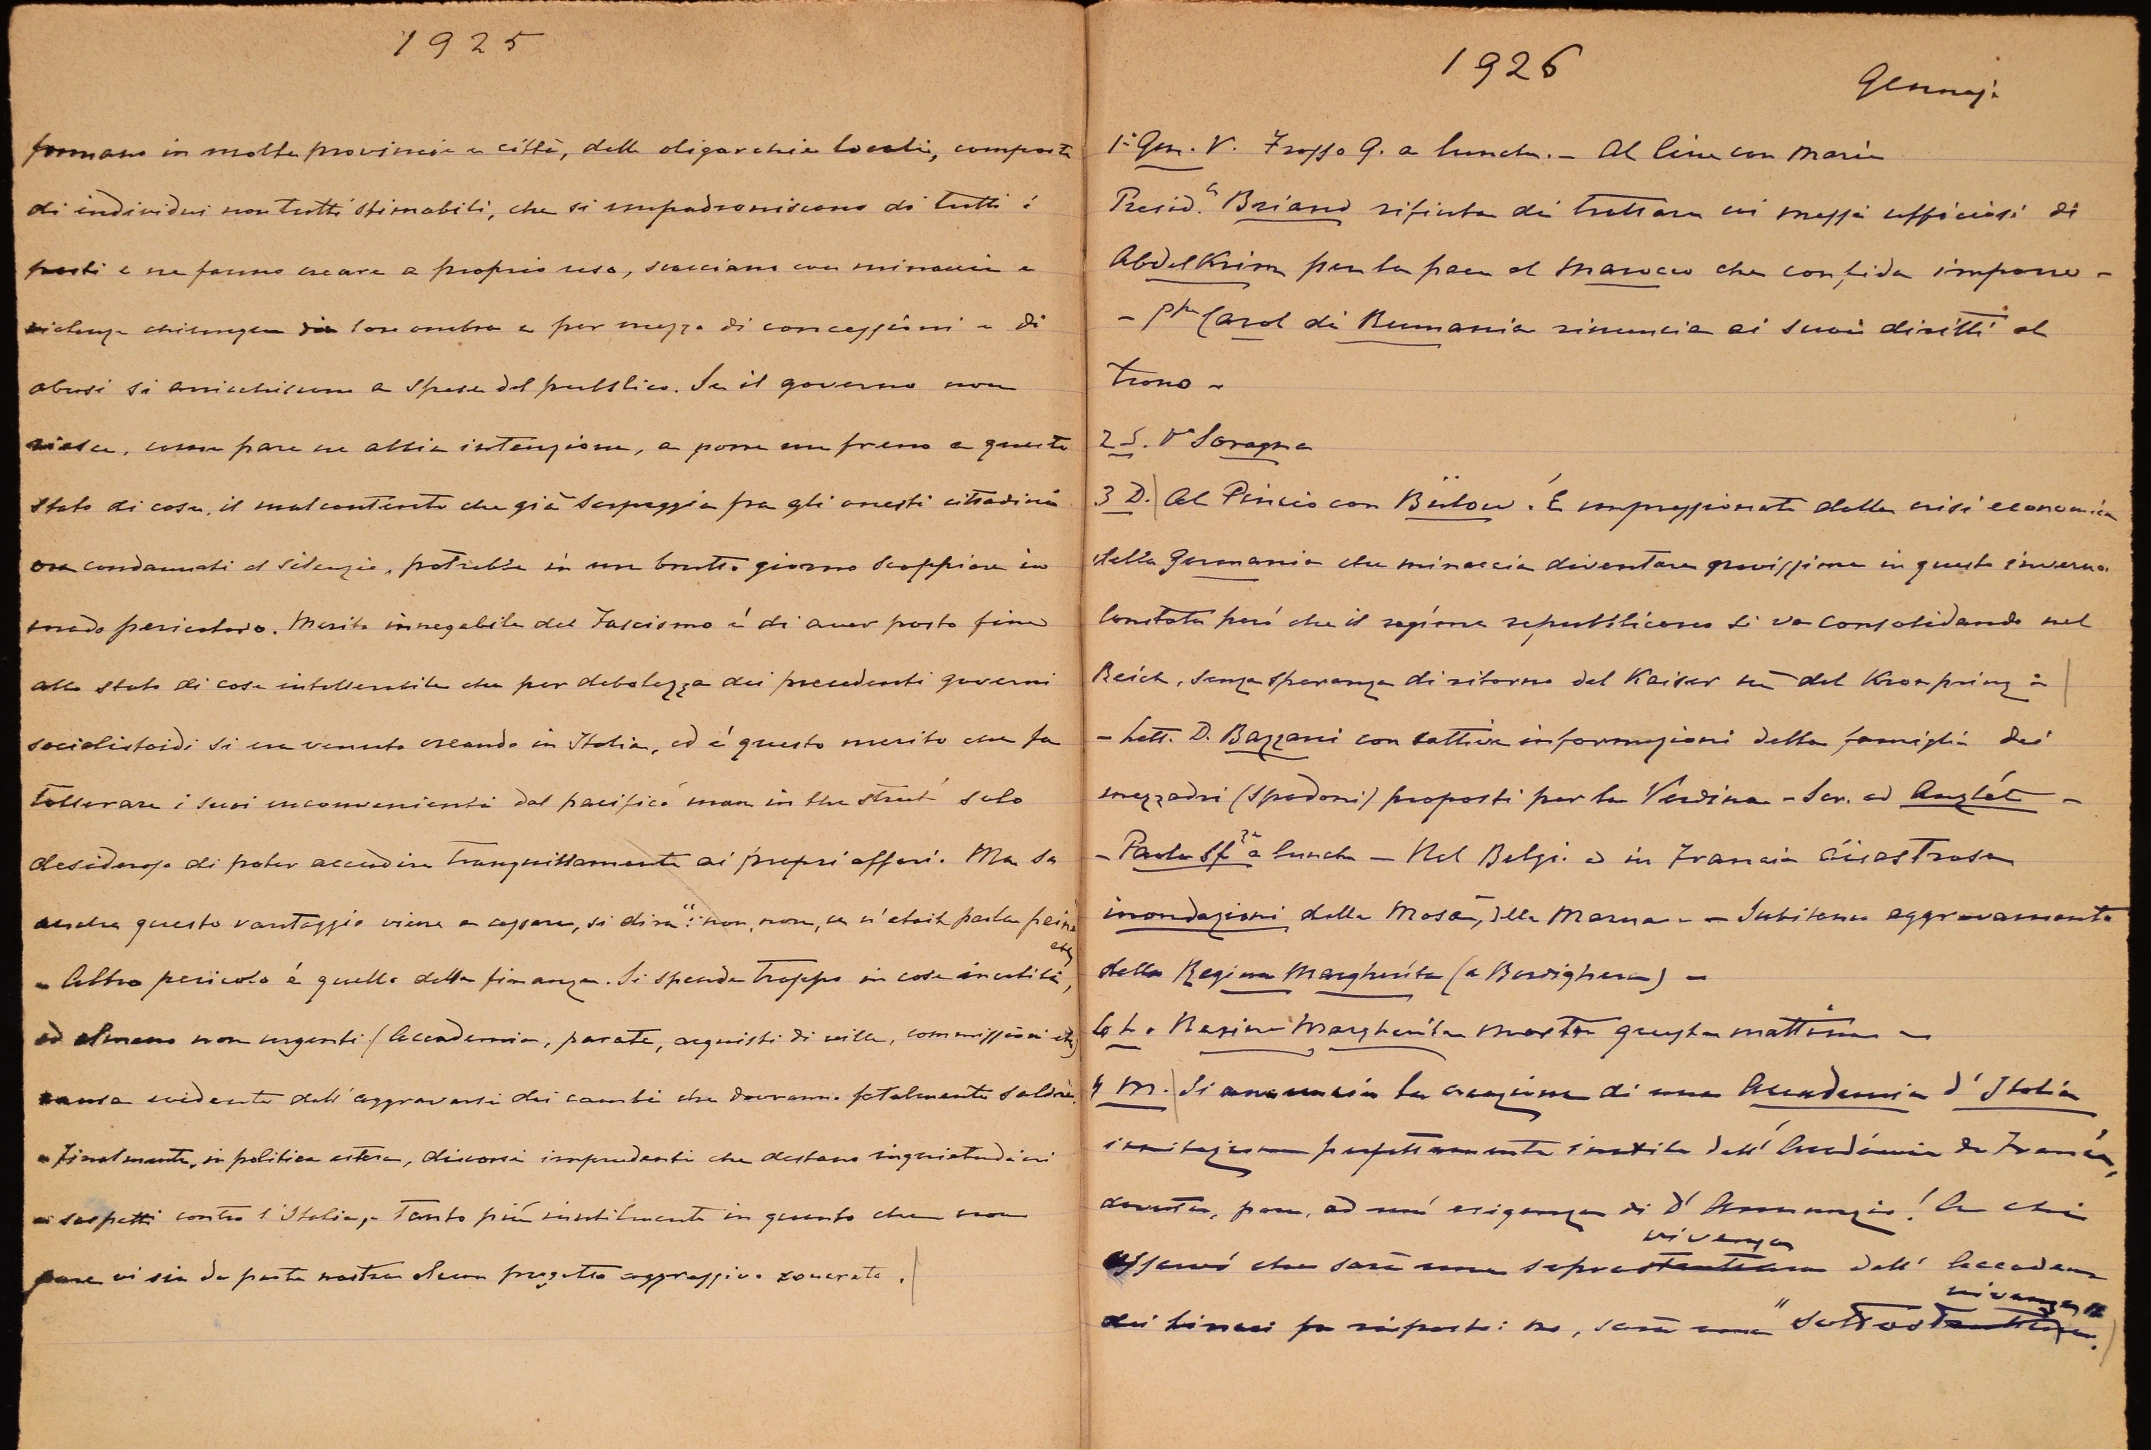 1925
formano in molte provincie e città, delle oligarchie locali, composte
di individui non tutti stimabili, che si impadroniscono di tutti i
posti e ne fanno creare a proprio uso, scacciano con minaccie e
violenze chiunque dia loro ombra e per mezzo di concessioni e di
abusi si arricchiscono a spese del pubblico. Se il governo non
riesce, come pare ne abbia intenzione, a porre un freno a questo
stato di cose, il malcontento che già serpeggia fra gli onesti cittadini
ora condannati al silenzio, potrebbe in un brutto giorno scoppiare in
modo pericoloso. Merito innegabile del Fascismo é di aver posto fine
allo stato di cose intollerabile che per debolezza dei precedenti governi
socialistoidi si era venuto creando in Italia, ed é questo merito che fa
tollerare i suoi inconvenienti dal pacifico man in the street solo
desideroso di poter accudire tranquillamente ai propri affari. Ma se
anche questo vantaggio viene a cessare, si dirà: "non, non, ce n'était pas la peine etc
- Altro pericolo é quello della finanza. Si spende troppo in cose inutili,
od almeno non urgenti (Accademia, parate, acquisti di ville, commissioni etc)
causa evidente dell'aggravarsi dei cambi che dovranno fatalmente salire.
- Finalmente, in politica estera, discorsi imprudenti che destano inquietudini
e sospetti contro l'Italia, tanto più inutilmente in quanto che non
pare vi sia da parte nostra alcun progetto aggressivo concreto.
1926
Gennajo
1° Gen. V. Frasso G. a lunch. - Al Cine con Maria
Presid.te Briand rifiuta di trattare coi messi ufficiosi di
Abdel Krim per la pace al Marocco che confida imporre -
- Ppe Carol di Rumania rinuncia ai suoi diritti al
trono -
2 S. Va Soragna
3 D. Al Pincio con Bülow. É impressionato della crisi economica
della Germania che minaccia diventare gravissima in questo inverno.
Constata però che il regime repubblicano si va consolidando nel
Reich, senza speranza di ritorno del Kaiser nè del Kronprinz -
- Lett. D. Bazzani con cattive informazioni della famiglia dei
mezzadri (Spadoni) proposti per la Verdina - Scr. ad Anzlét -
- Paolo Sf. a lunch - Nel Belgio e in Francia disastrose
inondazioni della Mosa, della Marna - - Subitaneo aggravamento
della Regina Margherita (a Bordighera) -
L. Regina Margherita morta questa mattina -
M. Si annuncia la creazione di una Accademia d'Italia
imitazione perfettamente inutile dell'Académie de France,
dovuta, pare, ad una esigenza di D'Annunzio! A chi
vivenza
osservò che sarà una soprastruttura dell'Accademia
vivenza"
dei Lincei fu risposto: no, sarà una "sottostruttura.